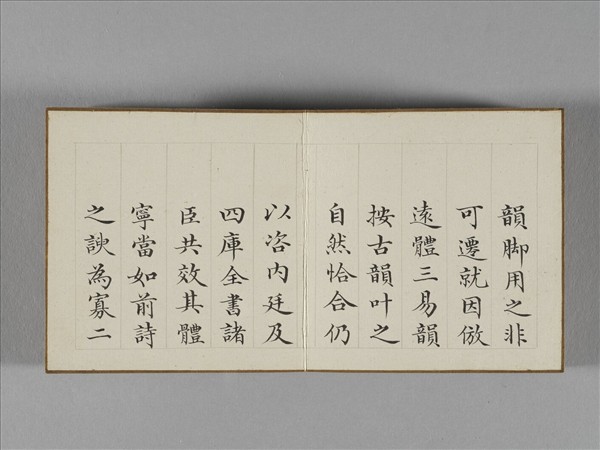 韻脚用之非
可遷就因倣
遠體三易韻
按古韻叶之
自然恰合仍
以咨内廷及
四庫全書諸
臣共效其體
寧當如前詩
之諛為寡二